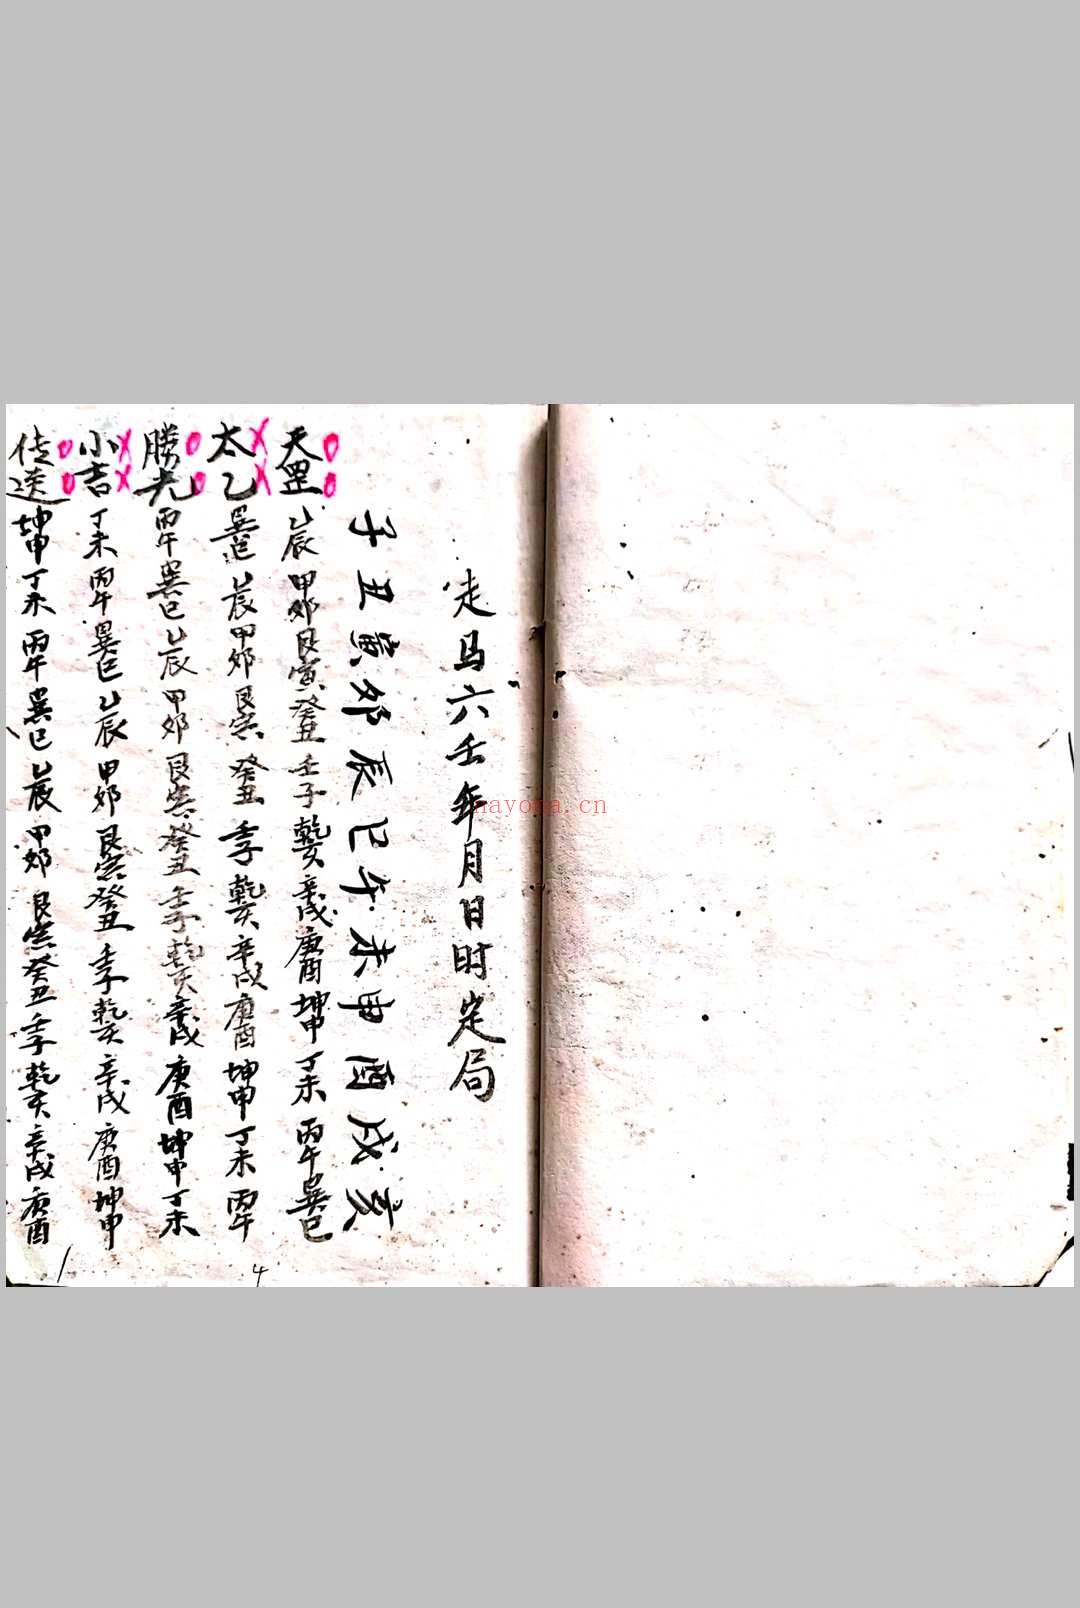 走马六壬年月日时定局
子丑寅夘辰巳午未申酉戌亥
天罡 乙辰 甲夘 艮寅 癸丑 壬子 乾亥 辛戌 庚酉 坤申 丁未 丙午 巽巳
太乙 巽巳 乙辰 甲夘 艮寅 癸丑 壬子 乾亥 辛戌 庚酉 坤申 丁未 丙午
勝光 丙午 巽巳 乙辰 甲夘 艮寅 癸丑 壬子 乾亥 辛戌 庚酉 坤申 丁未
小吉 丁未 丙午 巽巳 乙辰 甲夘 艮寅 癸丑 壬子 乾亥 辛戌 庚酉 坤申
传送 坤申 丁未 丙午 巽巳 乙辰 甲夘 艮寅 癸丑 壬子 乾亥 辛戌 庚酉
nayona.cn